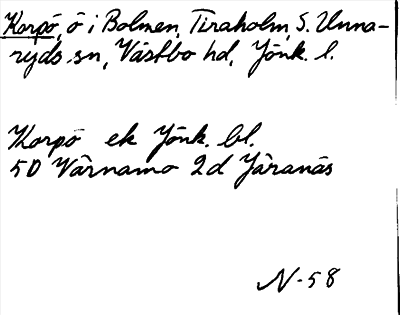 Korpö, ö i Bolmen, Tiraholm, S. Unna-
ryds sn, Västbo hd, Jönk. l.
Korpö ek Jönk. bl.
5D Värnamo 2d Järanäs
N-58